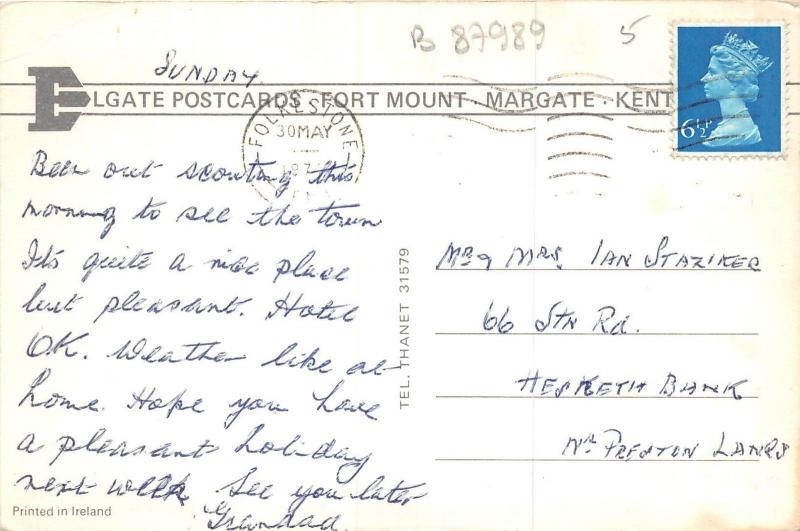 B 87989
5
SUNDAY
ELGATE POSTCARDS · FORT MOUNT · MARGATE · KENT
FOLKESTONE
30 MAY
6½P
Been out scouting this
morning to see the town
It's quite a nice place
but pleasant. Hotel
OK. Weather like at
home. Hope you have
a pleasant holiday
next week See you later
Grandad.
TEL. THANET 31579
MR & MRS. IAN STAZIKER
66 STN Rd.
HESKETH BANK
NR PRESTON LANCS
Printed in Ireland